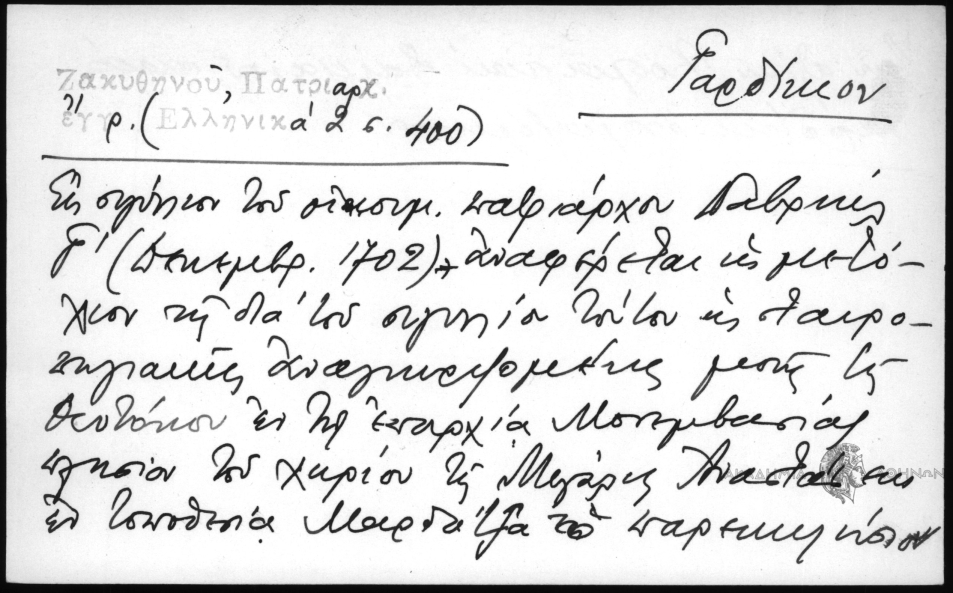 Γαρδίκιον
Ζακυθηνοῦ, Πατριαρχ.
ἔγγρ. (Ἑλληνικά 2 σ. 400)
Εἰς σιγίλλιον τοῦ οἰκουμ. πατριάρχου Γαβριήλ
Γ' (Δεκεμβρ. 1702) ἀναφέρεται ὡς μετό-
χιον τῆς διὰ τοῦ σιγιλλίου τούτου ὡς σταυρο-
πηγιακῆς ἀναγνωριζομένης μονῆς τῆς
Θεοτόκου ἐν τῇ ἐπαρχίᾳ Μονεμβασίας
πλησίον τοῦ χωρίου τῆς Μεγάλης Ἀναστάσεως
ἐν τοποθεσίᾳ τὸ παρεκκλήσιον
ΑΚΑΔΗΜΙΑ ΑΘΗΝΩΝ